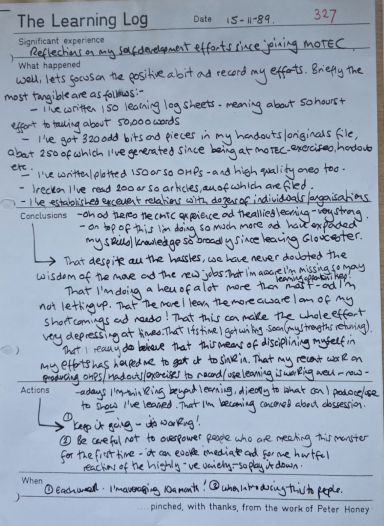 The Learning Log Date 15-11-89. 327
Significant experience
Reflections on my self development efforts since joining MOTEC.
What happened
Well, lets focus on the positive a bit and record my efforts. Briefly the
most tangible are as follows:-
- I've written 150 learning log sheets - meaning about 50 hours +
effort to talling about 50,000 words
- I've got 320 odd bits and pieces in my handouts/originals file,
about 250 of which I've generated since being at MOTEC - exercises, handouts
etc.
- I've written/plotted 150 or so OHPs - and high quality ones too.
- I reckon I've read 200 or so articles, all of which are filed.
- I've established excellent relations with dozens of individuals/organisations
Conclusions - oh and theres the CMTC experience and the allied learning - very strong.
- on top of this I'm doing so much more and have expanded
my skills/knowledge so broadly since leaving Gloucester.
That despite all the hassles, we have never doubted the
wisdom of the move and the new job. That I'm aware I'm missing so many
learning opportunities!
That I'm doing a hell of a lot more than most - and I'm
not letting up. That the more I learn the more aware I am of my
shortcomings and needs! That this can make the whole effort
very depressing at times. That its time I got writing soon (my strengths returning).
That I really do believe that this means of disciplining myself in
my efforts has helped me to get it to sink in. That my recent work on
producing OHPs/handouts/exercises to record/use learning is working well - now -
Actions - adays I'm thinking beyond learning, directly to what can I produce/use
to show I've learned. That I'm becoming concerned about obsession.
① Keep it going - its working!
② Be careful not to overpower people who are meeting this monster
for the first time - it can evoke immediate and for me hurtful
reactions of the highly -ve variety - so play it down.
When
① Each week. I'm averaging 10 a month! ② When introducing this to people.
....pinched, with thanks, from the work of Peter Honey